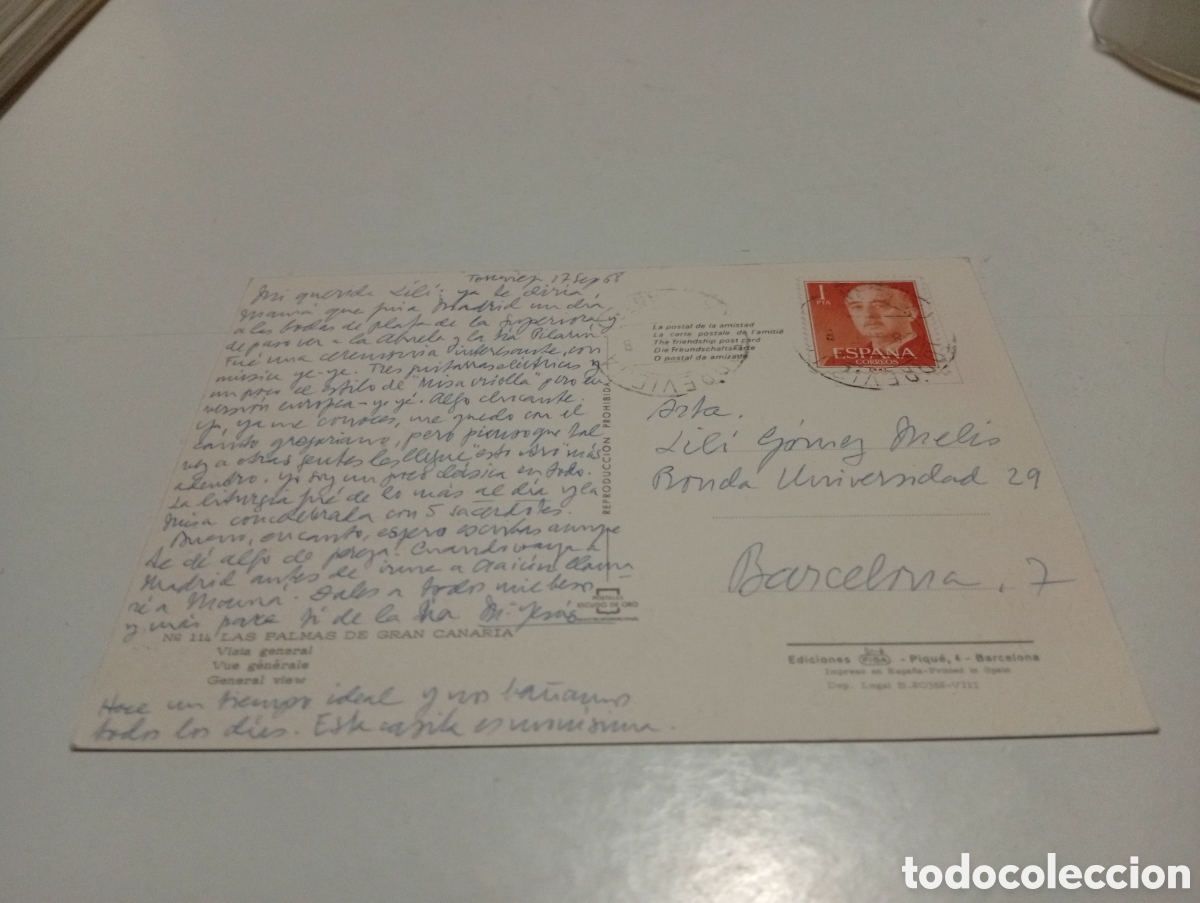 Torrevieja 17 Sep 68
Mi querida Lilí: ya te diría
Mamá que fui a Madrid un día,
a las bodas de plata de la Superiora y
de paso ver a la Abuela y la tía Pilarín.
Fué una ceremonia interesante, con
música ye-ye. Tres guitarras eléctricas y
un poco al estilo de "Misa criolla" pero en
versión europea-ye-yé. Algo chocante.
Yo, ya me conoces, me quedo con el
canto gregoriano, pero pienso que tal
vez a otras gentes les llegue "esto" más
adentro. Yo soy un poco clásica en todo.
La liturgia fué de lo más al día y la
misa concelebrada con 5 sacerdotes.
Bueno, encanto, espero escribas aunque
te dé algo de pereza. Cuando vaya a
Madrid antes de irme a
ré a Mamá. Dales a todos mil besos
y más para ti de la tía Mª Jesús
Nº 114 LAS PALMAS DE GRAN CANARIA
Vista general
Vue générale
General view
Hace un tiempo ideal y nos bañamos
todos los días. Esta casita es monísima.
REPRODUCCIÓN PROHIBIDA
POSTALES
ESCUDO DE ORO
La postal de la amistad
La carte postale de l'amitié
The friendship post card
Die Freundschaftskarte
O postal da amizade
1
PTA
ESPAÑA
CORREOS
TORREVIEJA
Srta.
Lilí Gómez Melis
Ronda Universidad 29
Barcelona, 7
Ediciones FISA - Piqué, 4 - Barcelona
Impreso en España-Printed in Spain
Dep. Legal B.
todocoleccion